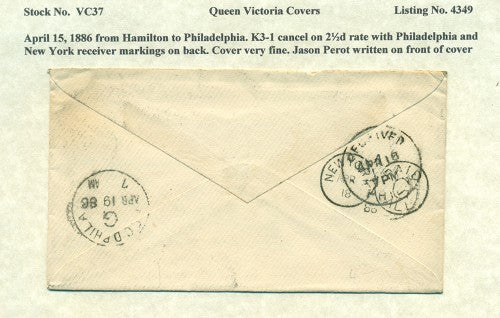 Stock No. VC37 Queen Victoria Covers Listing No. 4349
April 15, 1886 from Hamilton to Philadelphia. K3-1 cancel on 2½d rate with Philadelphia and
New York receiver markings on back. Cover very fine. Jason Perot written on front of cover
REC'D PHILA
G
APR 19 86
7 AM
RECEIVED
NEW
PAID